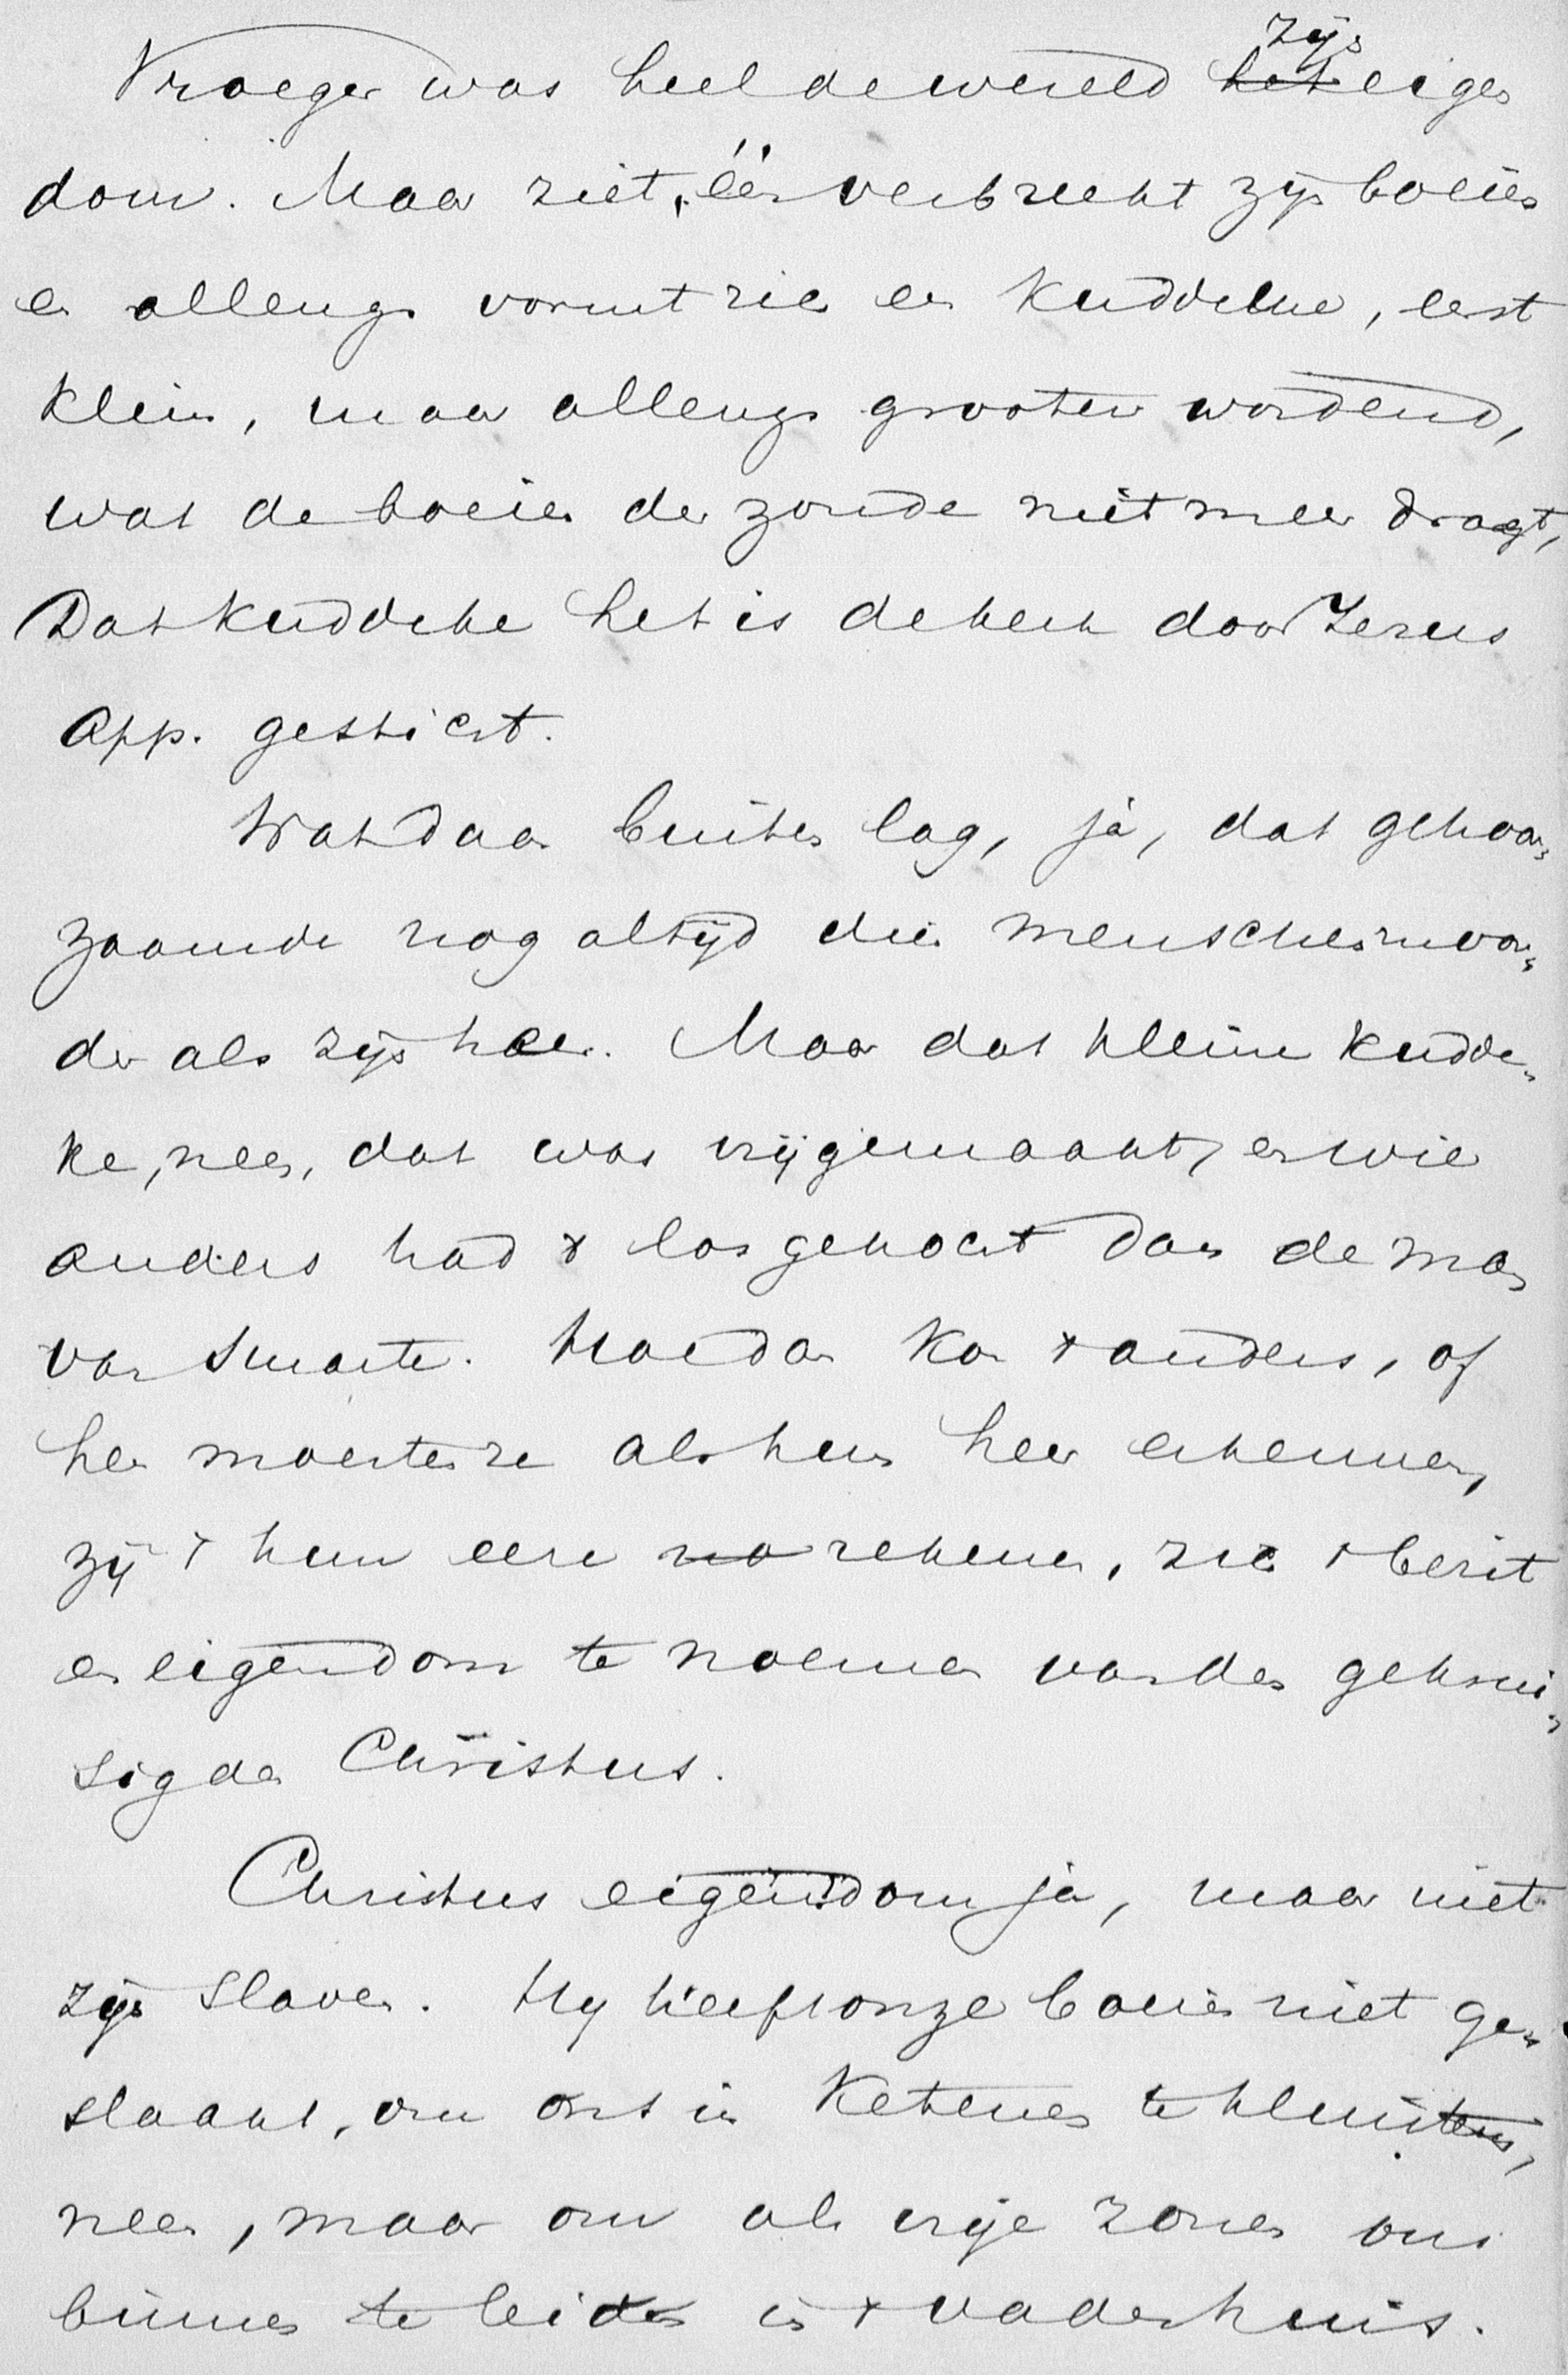 Vroeger was heel de wereld ~~het~~ zijn eigen
dom. Maar ziet, één verbreekt zijn boeien
en allengs vormt zich een kuddeke, eerst
klein, maar allengs grooter wordend,
wat de boeien der zonde niet meer draagt,
Dat kuddeke het is de kerk door Jezus
App. gesticht.
Wat daar buiten lag, ja, dat gehoor-
zaamde nog altijd den menschenmoor-
der als zijn heer. Maar dat kleine kudde-
ke, neen, dat was vrijgemaakt, en wie
anders had x losgekocht dan de man
van smarte. Hoe dan kon x anders, of
hen moesten ze als hun heer erkennen,
zij x hun eere ~~na~~ rekenen, zich x bezit
en eigendom te noemen van den gekrui-
sigden Christus.
Christus eigendom ja, maar niet
zijn slaven. Hij heeft onze boeien niet ge-
slaakt, om ons in ketenen te kluisteren,
neen, maar om als vrije zonen ons
binnen te leiden in x vaderhuis.